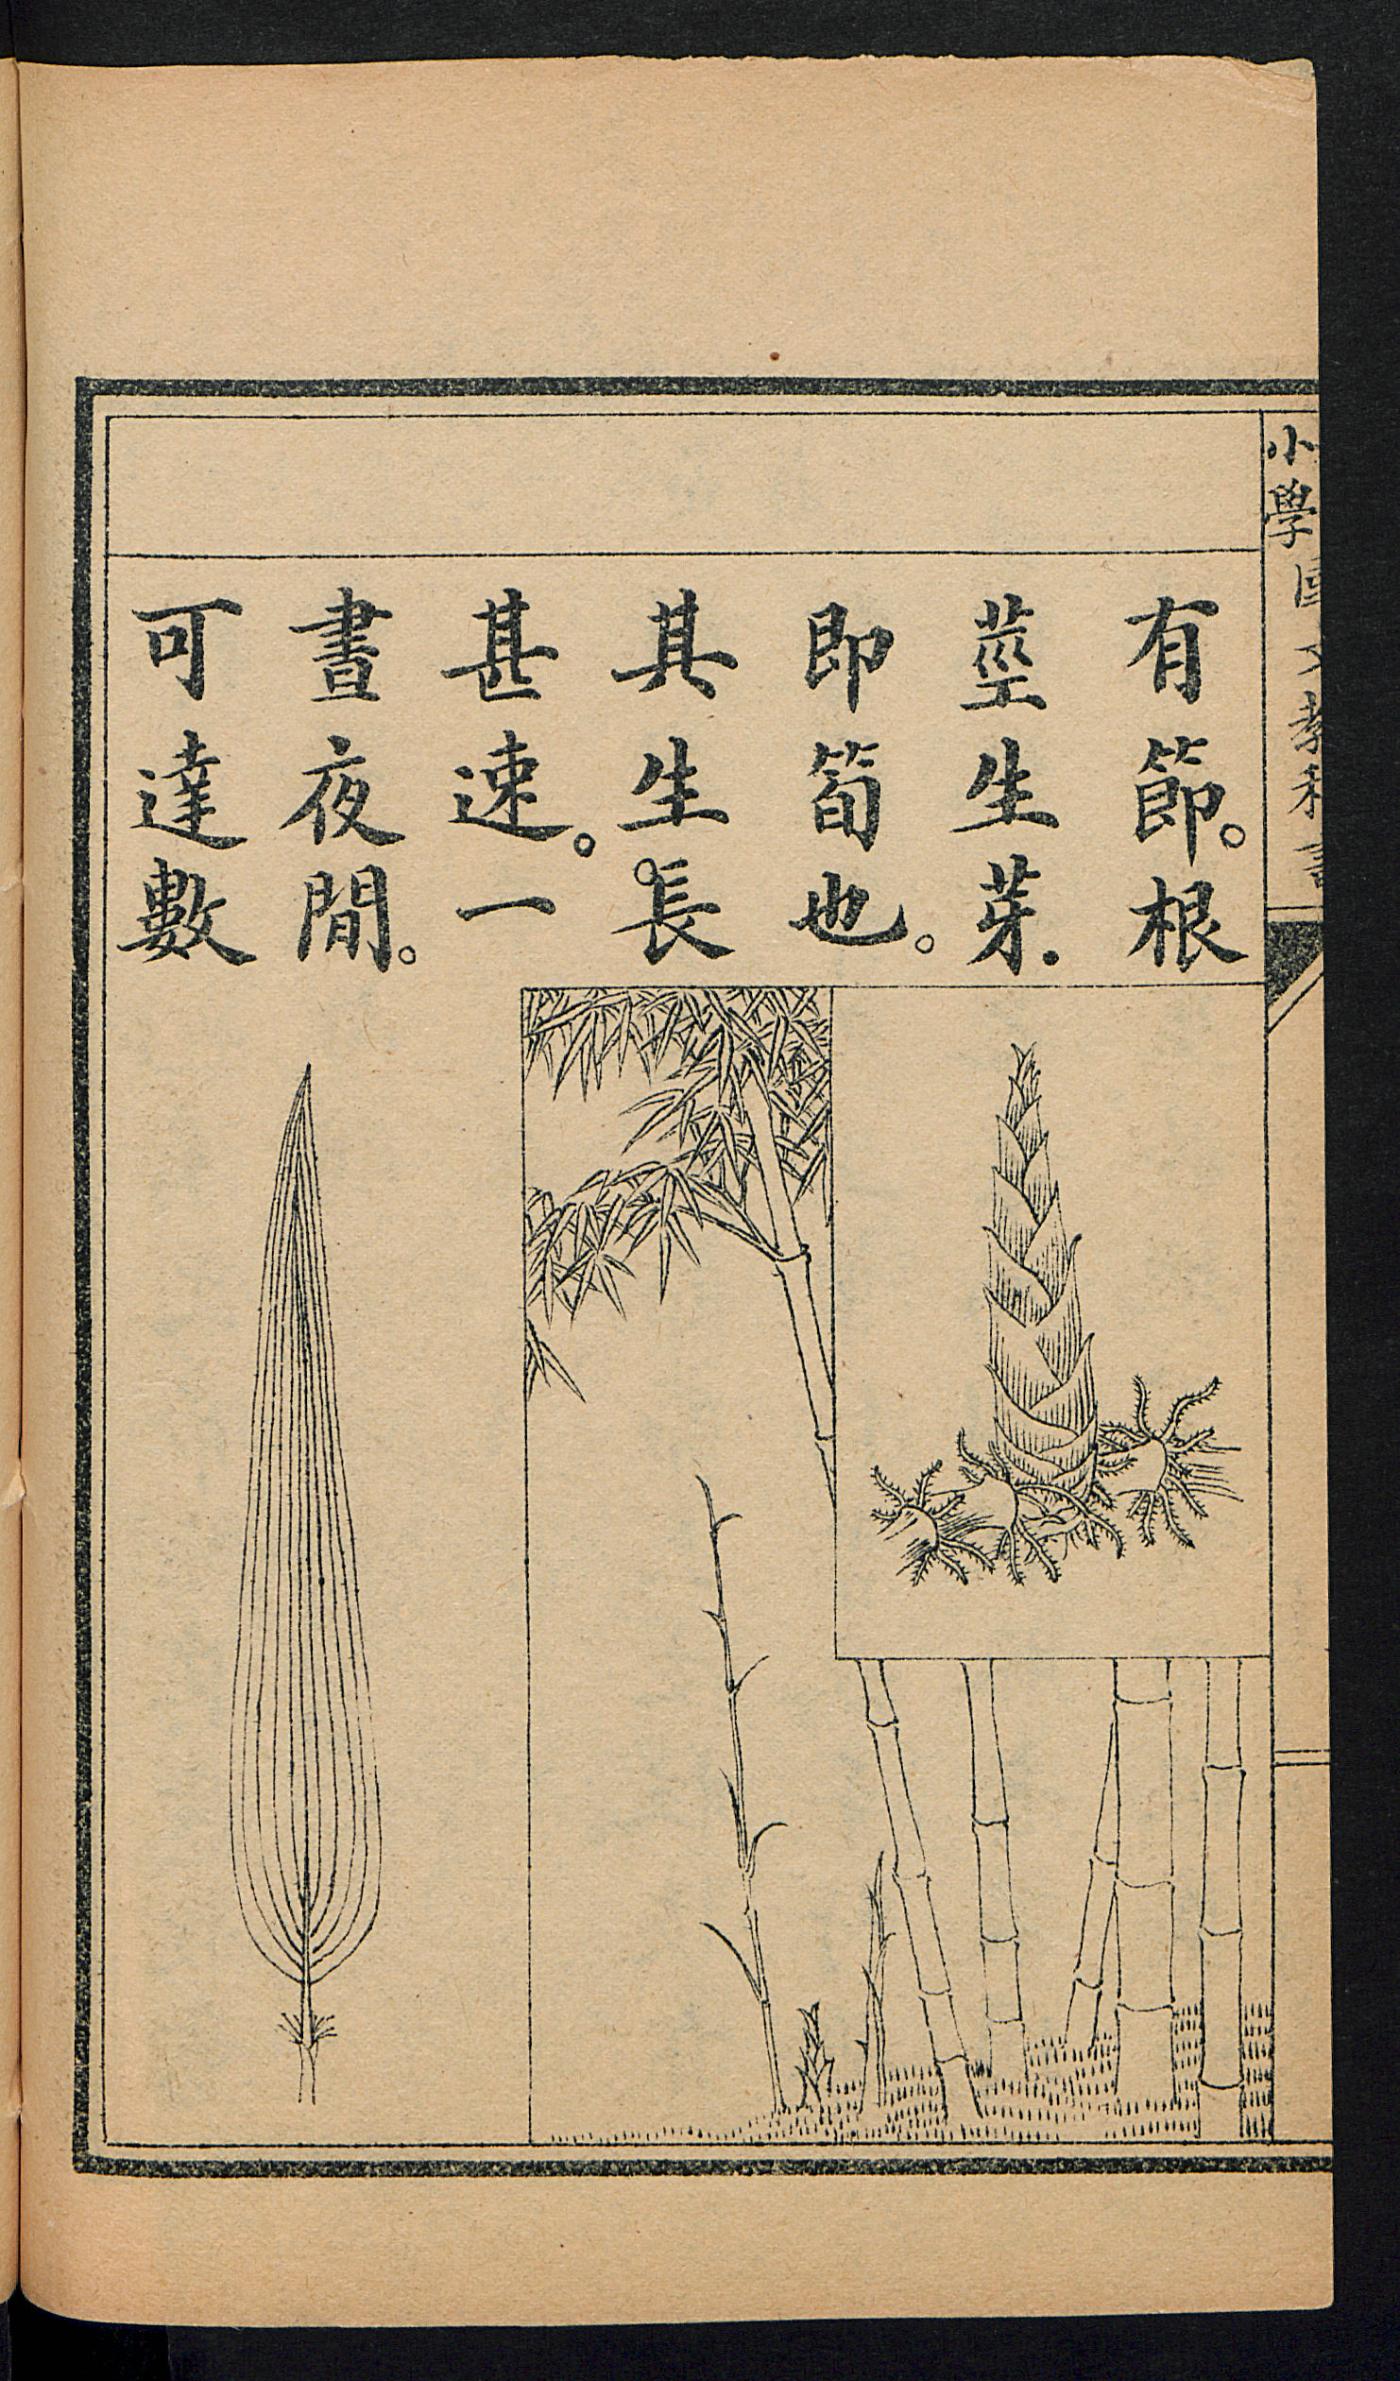 小學國文教科書
有節。根
莖生芽.
即筍也。
其生長
甚速。一
晝夜間。
可達數